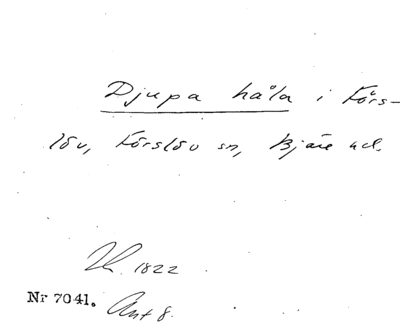 Djupa håla i Förs-
löv, Förslöv sn, Bjäre hd.
1822
Nr 7041. Ant 8.